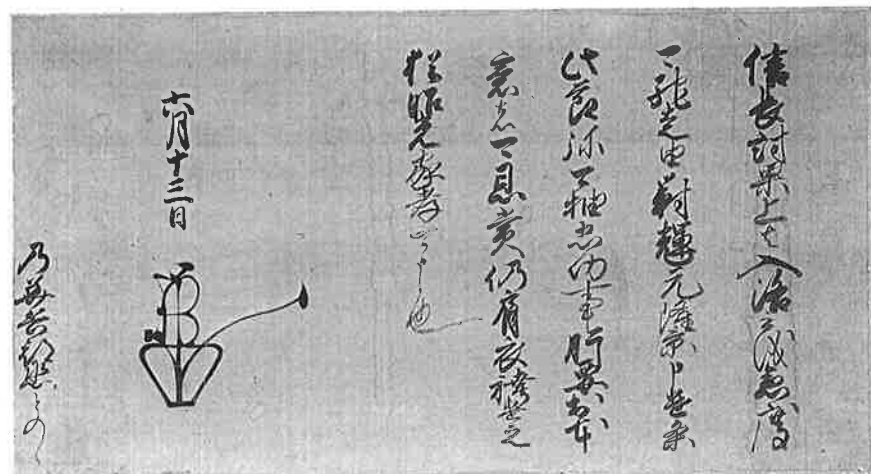 信長討果上者入洛之儀急度
可馳走由對輝元隆景申遣条
此節弥可抽忠功事肝要於本
意者可恩賞仍肩衣袴遣之
猶昭光家孝可申候也
六月十三日
乃美兵部丞とのへ